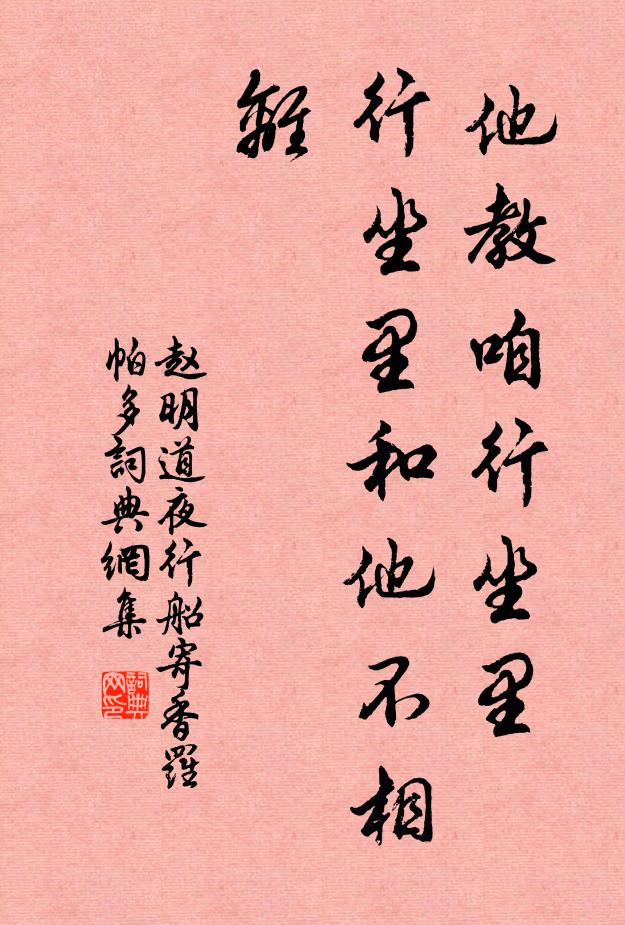 他教咱行坐里
行坐里和他不相
離
赵明道夜行船寄香羅
帕多詞典網集
詞典
网印